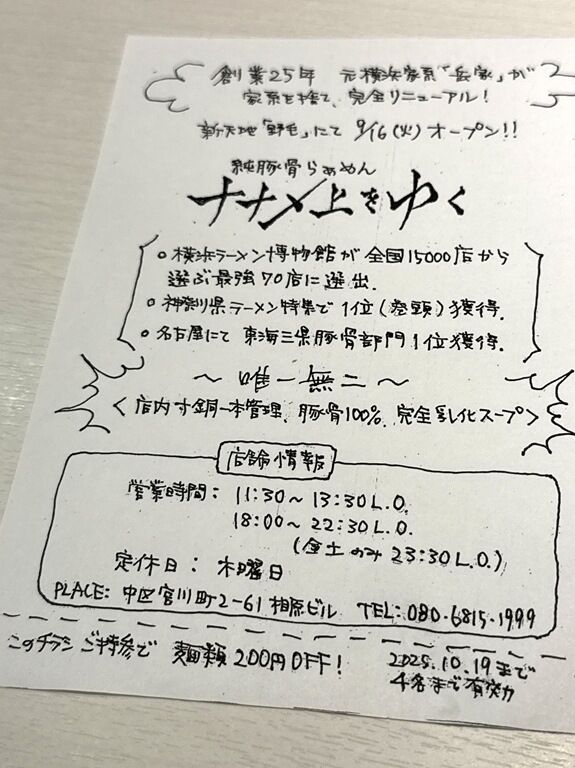 創業25年 元横浜家系「兵家」が
家系を捨て、完全リニューアル!
新天地「野毛」にて 9/16(火)オープン!!
純豚骨らぁめん
ナナメ上をゆく
○横浜ラーメン博物館が全国15000店から
選ぶ最強70店に選出.
○神奈川県ラーメン特集で1位(巻頭)獲得.
○名古屋にて 東海三県豚骨部門1位獲得.
〜唯一無二〜
<店内寸銅一本管理、豚骨100%、完全乳化スープ>
店舗情報
営業時間: 11:30〜13:30L.O.
18:00〜22:30L.O.
(金土のみ 23:30L.O.)
定休日: 木曜日
PLACE: 中区宮川町2-61 相原ビル TEL: 080-6815-1999
このチラシご持参で 麺類200円OFF!
2025.10.19まで
4名まで有効